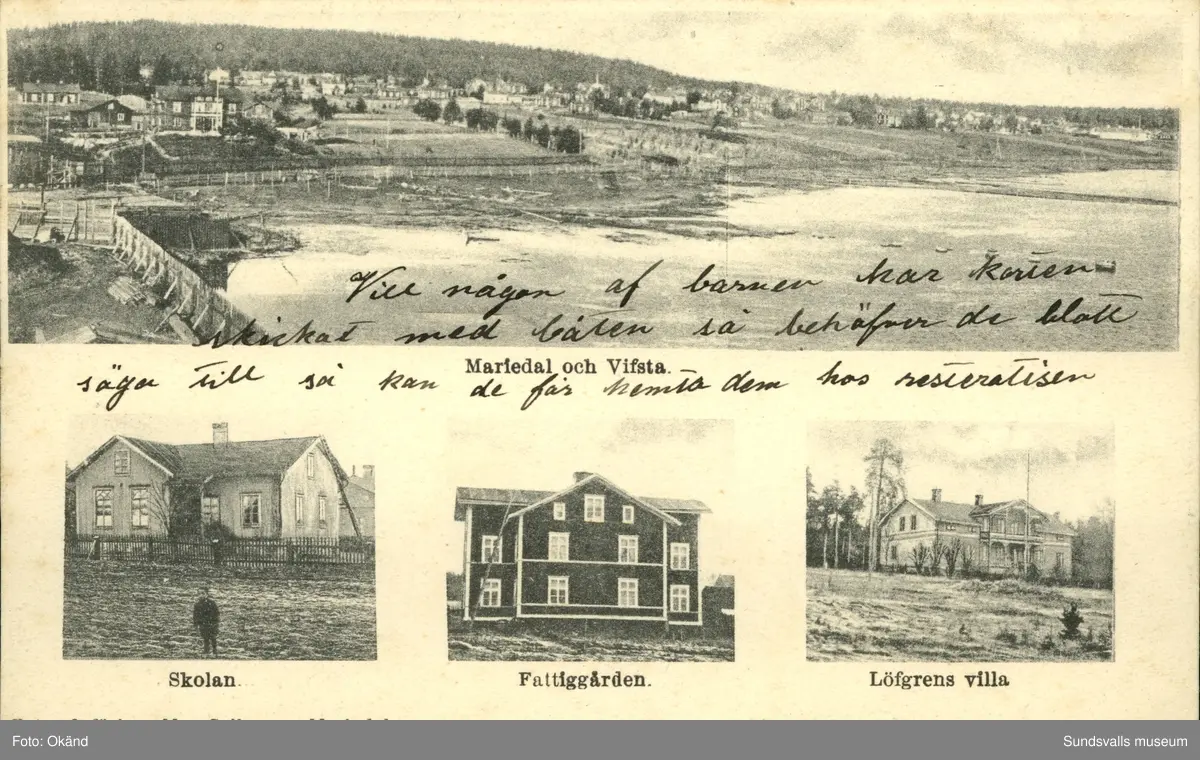 Vill någon af barnen har korten
skickat med båten så behöfver de blott
Mariedal och Vifsta.
säga till så kan de får hemta dem hos restoratisen
Skolan.
Fattiggården.
Löfgrens villa
Foto: Okänd
Sundsvalls museum